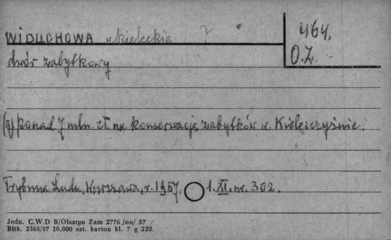 WIDUCHOWA kieleckie 464.
dwór zabytkowy O.Z.
(y) ponad 7 mln. zł. na konserwację zabytków w Kielecczyźnie.
Trybuna Ludu, Warszawa, r. 1957, 1.XI. nr. 302.
Jedn. C.W.D B/Olsztyn Zam 2776 /oa/ 57
Bltk. 2563/57 10.000 szt. karton kl. 7 g 220.